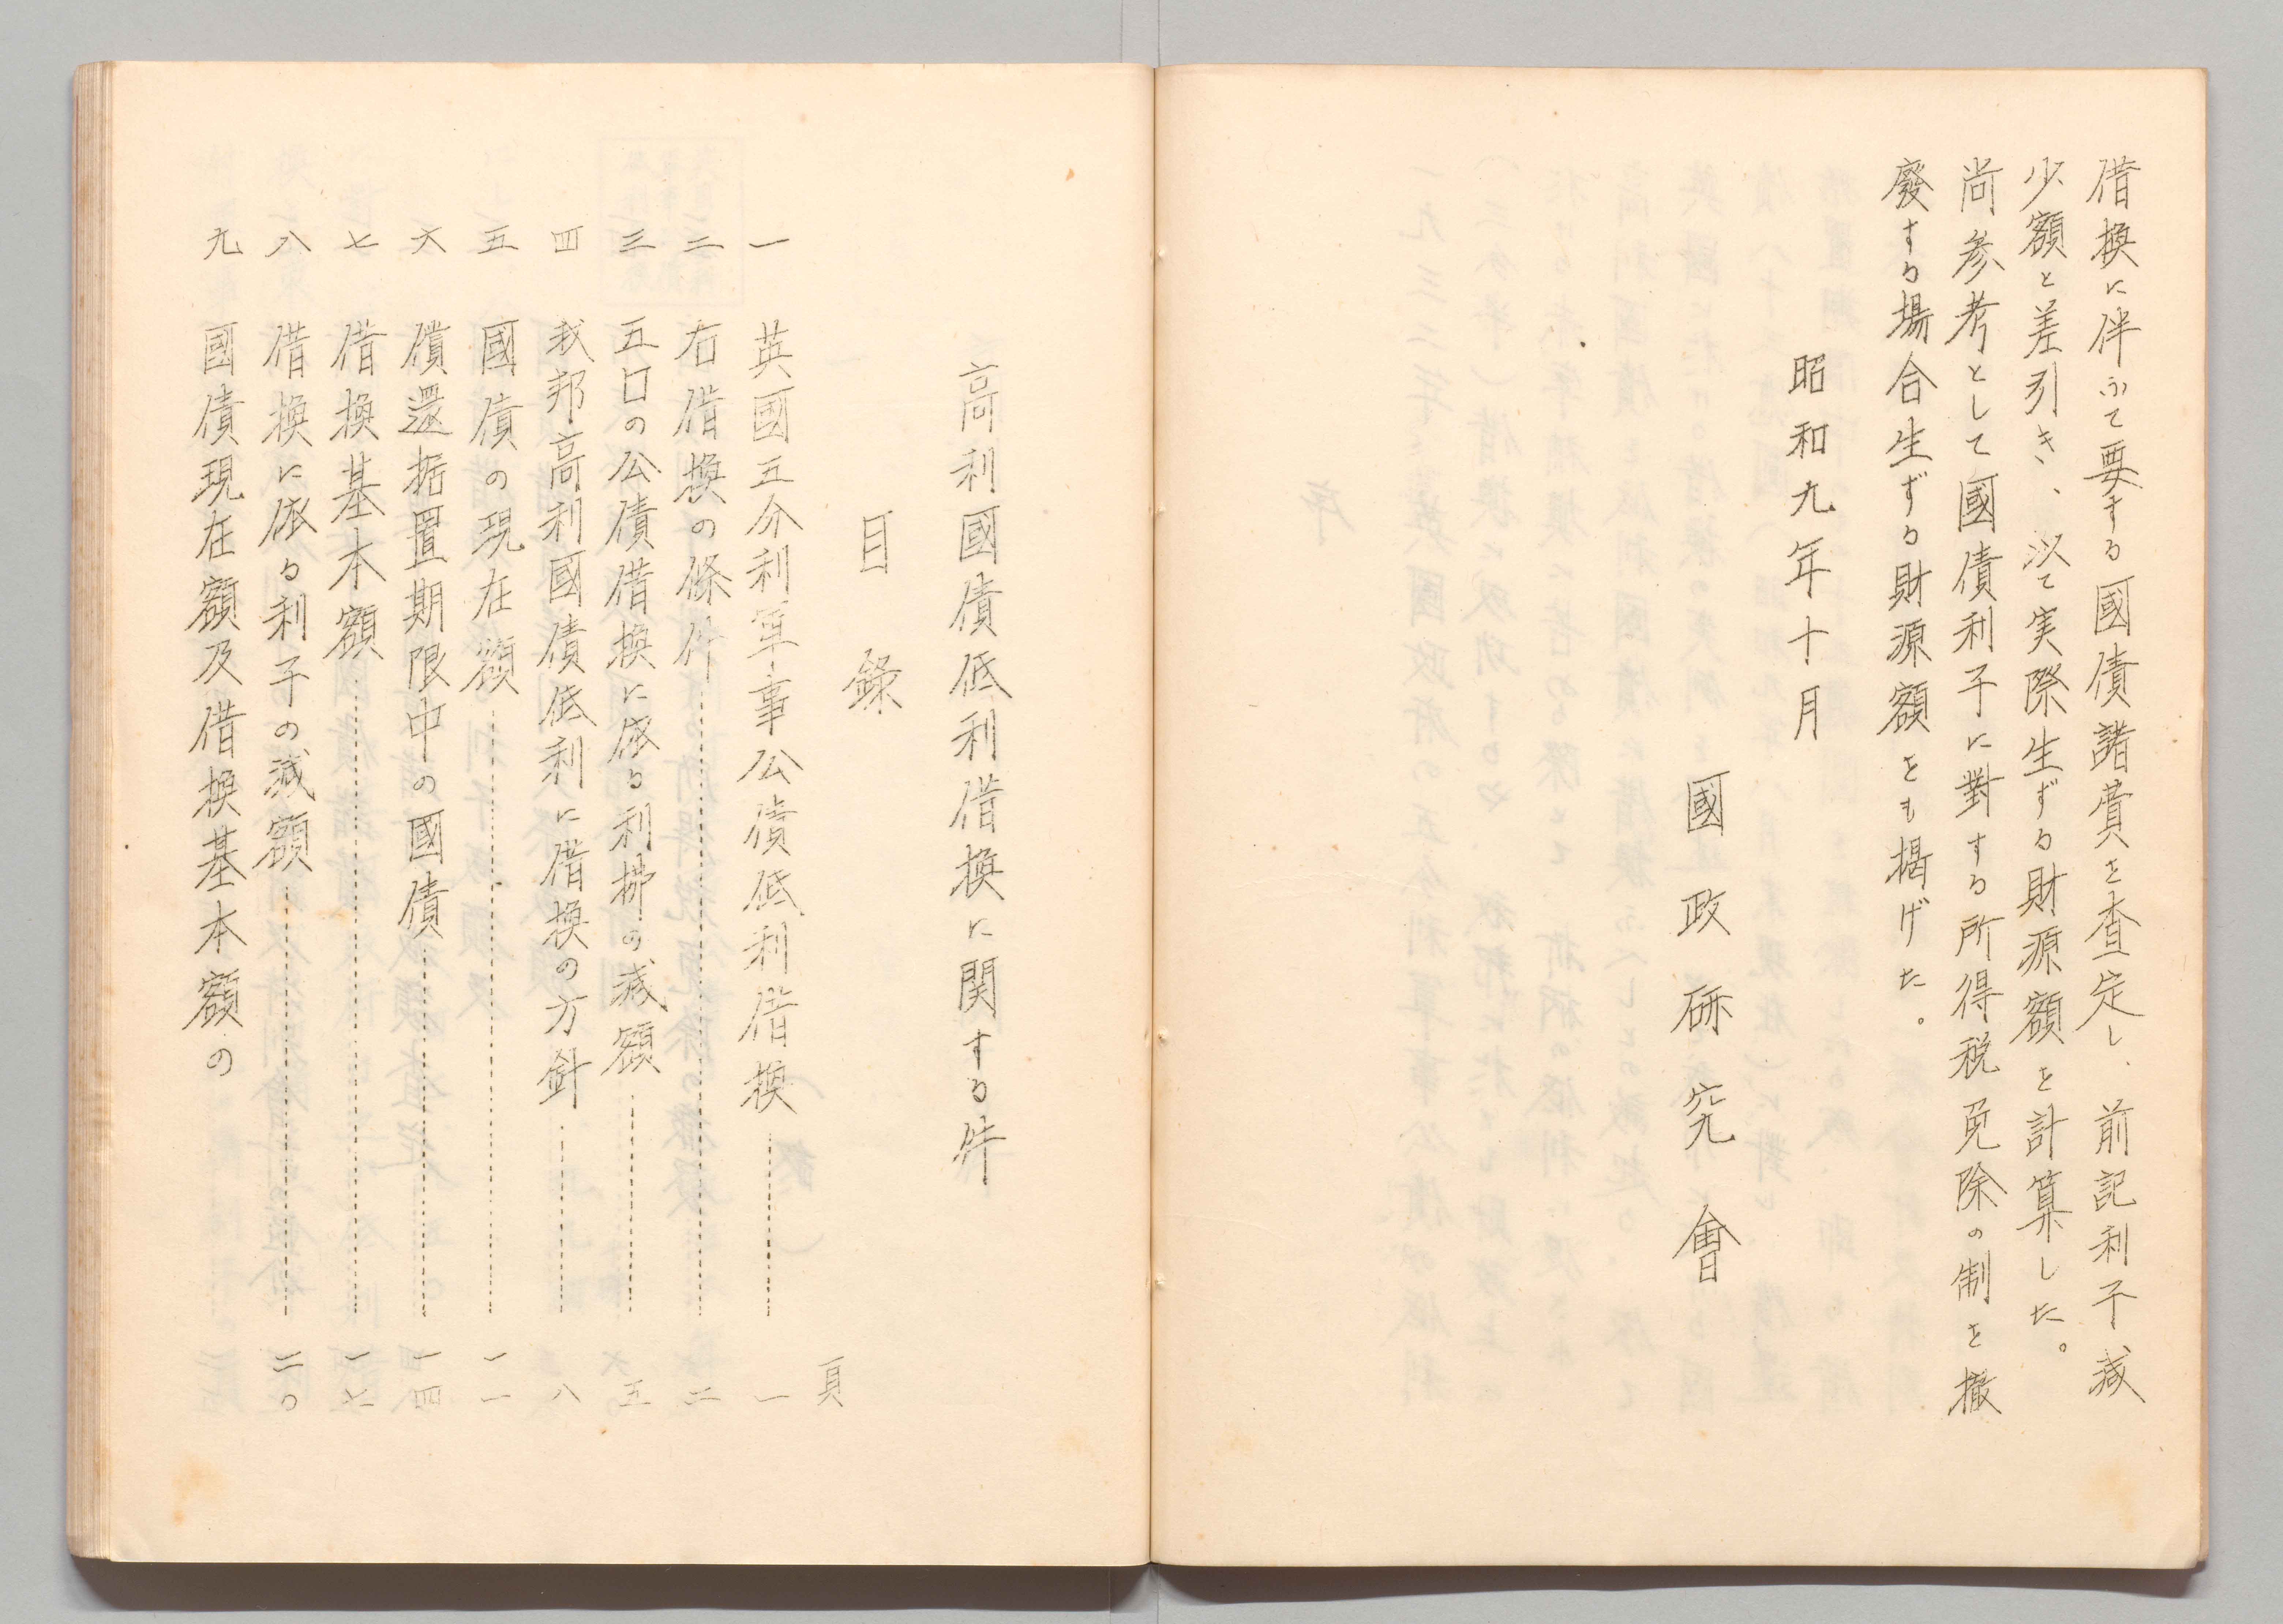 借換に伴ふて要する國債諸費を査定し、前記利子減
少額と差引き、以て実際生ずる財源額を計算した。
尚参考として國債利子に對する所得税免除の制を撤
廢する場合生ずる財源額をも掲げた。
昭和九年十月
國政研究會
高利國債低利借換に関する件
目録
頁
一 英國五分利軍事公債低利借換………一
二 右借換の條件………二
三 五口の公債借換に依る利拂の減額………五
四 我邦高利國債低利に借換の方針………八
五 國債の現在額………一一
六 償還据置期限中の國債………一四
七 借換基本額………一七
八 借換に依る利子の減額………二〇
九 國債現在額及借換基本額の